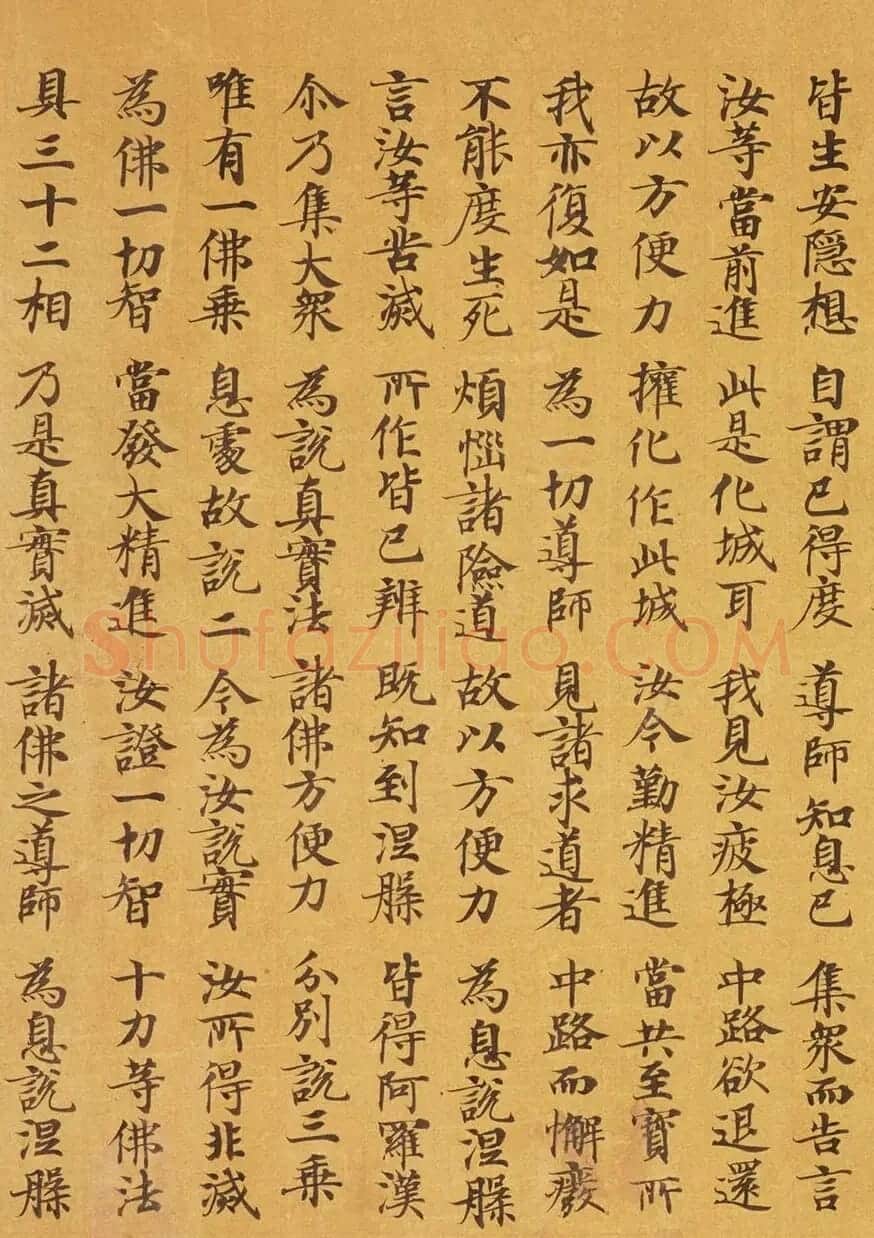 皆生安隱想 自謂已得度 導師知息已 集眾而告言
汝等當前進 此是化城耳 我見汝疲極 中路欲退還
故以方便力 擁化作此城 汝今勤精進 當共至寶所
我亦復如是 為一切導師 見諸求道者 中路而懈癈
不能度生死 煩惱諸險道 故以方便力 為息說涅槃
言汝等苦滅 所作皆已辨 既知到涅槃 皆得阿羅漢
尒乃集大眾 為說真實法 諸佛方便力 分別說三乘
唯有一佛乘 息處故說二 今為汝說實 汝所得非滅
為佛一切智 當發大精進 汝證一切智 十力等佛法
具三十二相 乃是真實滅 諸佛之導師 為息說涅槃
shufaziliao.COM